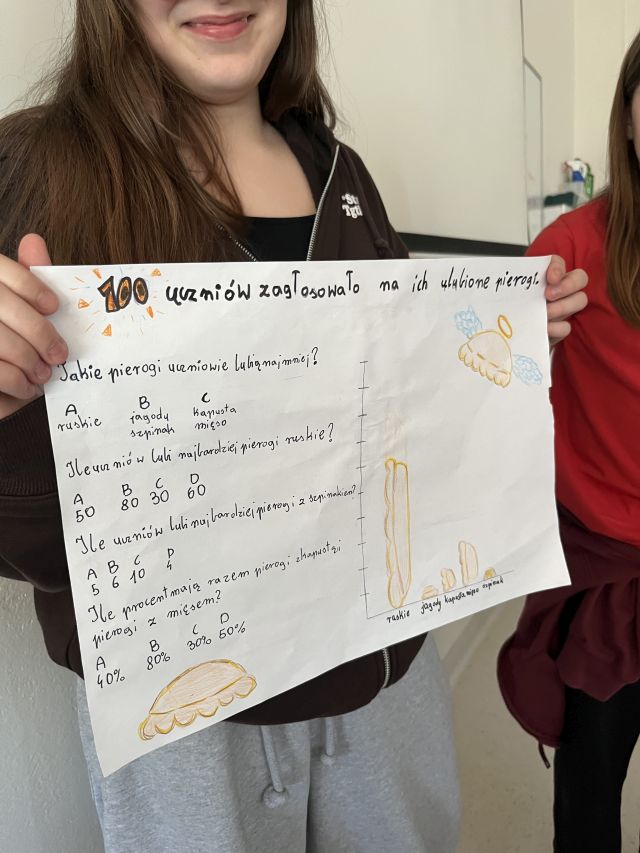 100 uczniów zagłosowało na ich ulubione pierogi.
Jakie pierogi uczniowie lubią najmniej?
A B C
ruskie jagody kapusta
szpinak mięso
Ile uczniów lubi najbardziej pierogi ruskie?
A B C D
50 80 30 60
Ile uczniów lubi najbardziej pierogi z szpinakiem?
A B C D
5 6 10 4
Ile procent mają razem pierogi z kapustą i
pierogi z mięsem?
A B C D
40% 80% 30% 50%
ruskie jagody kapusta mięso szpinak